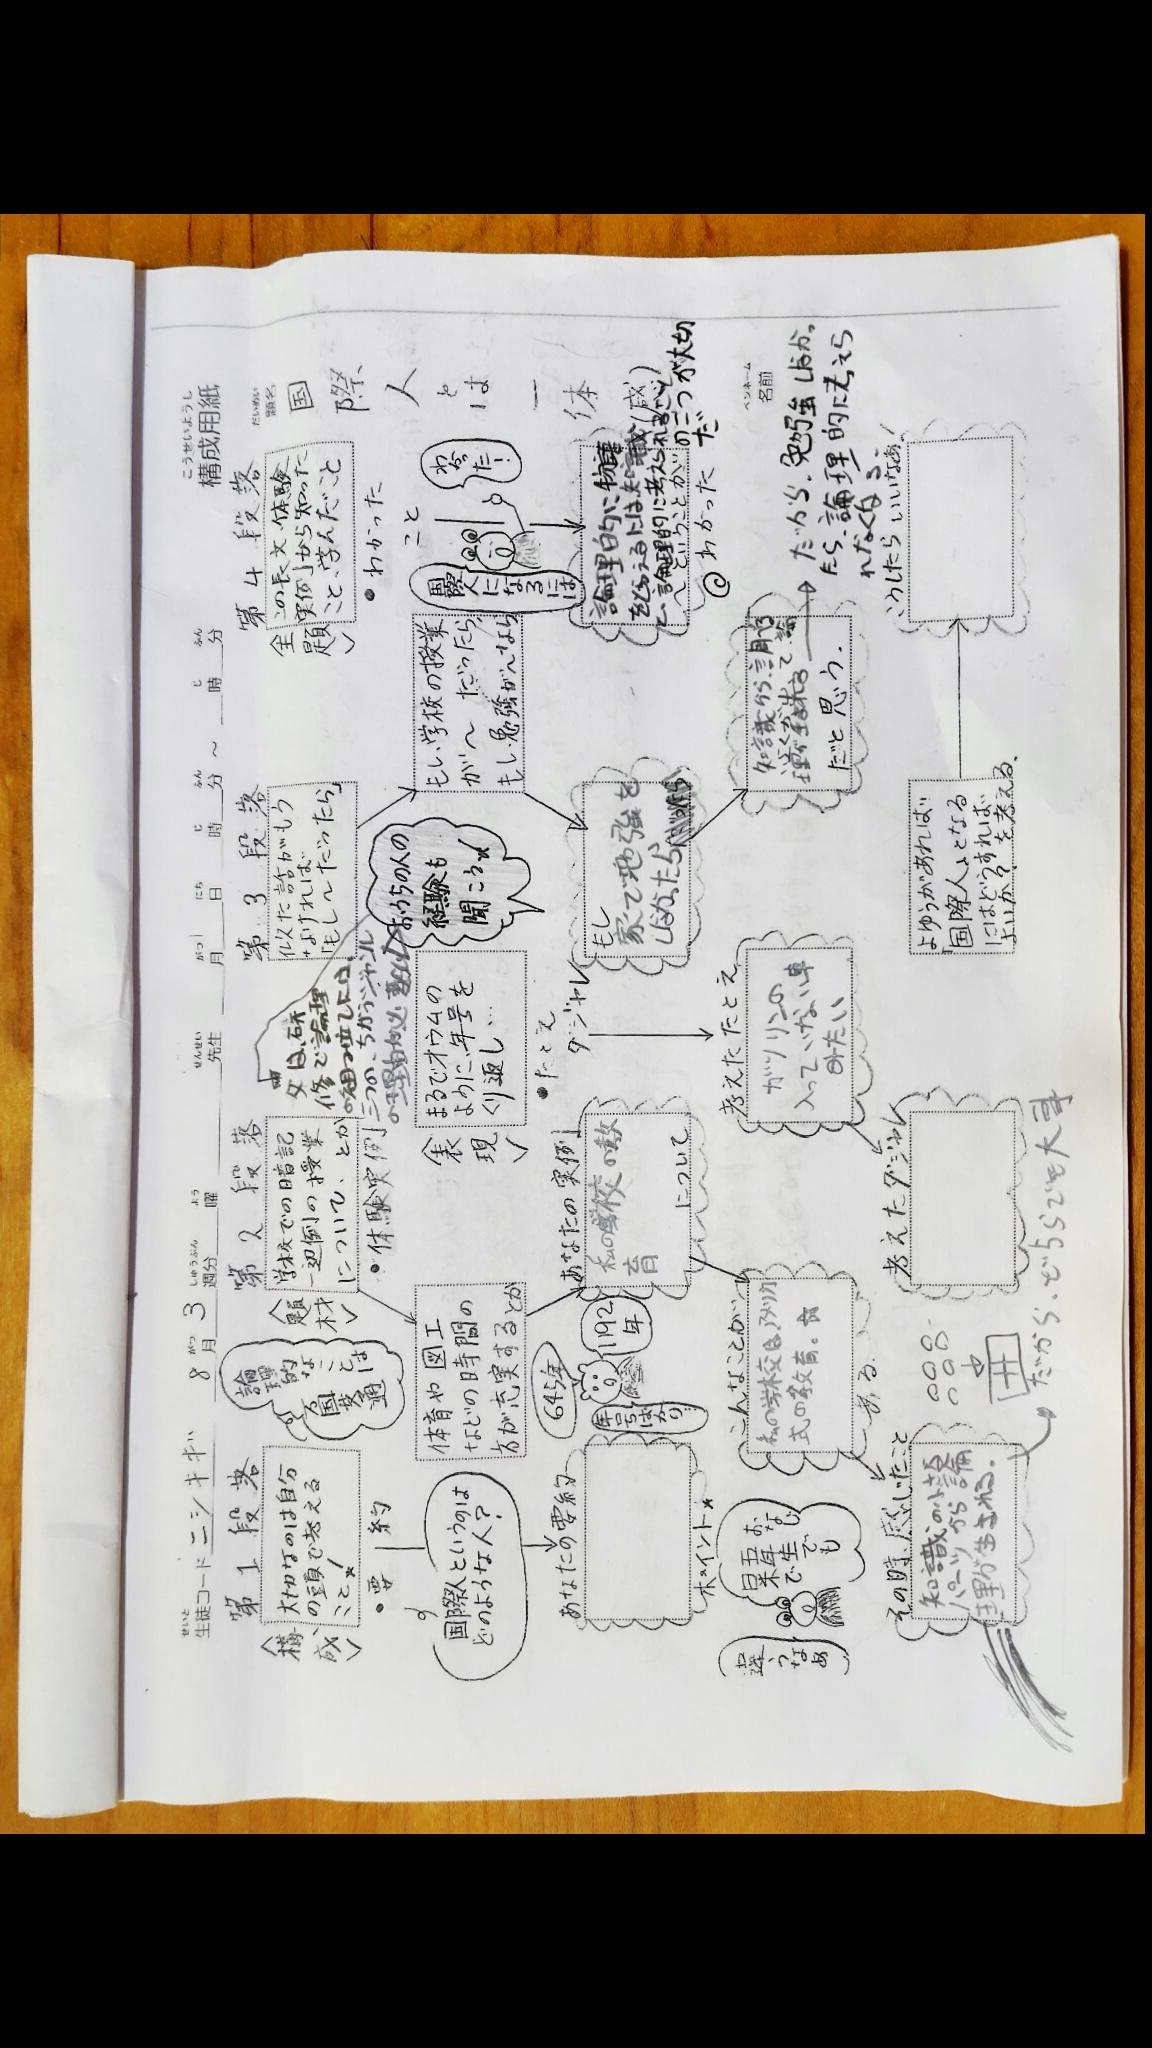 こうせいようし
構成用紙
せいと
生徒コード ニシキギ
がつ
8月
しゅうぶん
3週分
よう
曜
せんせい
先生
がつ
月
にち
日
じ
時
ふん
分
～
じ
時
ふん
分
だいめい
題名
国際人とは一体
ペンネーム
名前
第1段落
〈構成〉
大切なのは自分
の頭で考える
こと★
・要約
国際人というのは
どのような人？
あなたの要約
ポイント★
お
なじ
で
も
違
う
なあ
その時、感じたこと
知識の小さな
パーツから論
理が生まれる。
だから、どちらでも大事
第2段落
〈題材〉
学校での暗記
一辺倒の授業
について、とか
・体験実例
論理的
なことは
国境
通
体育や図工
などの時間の
方が充実するとか
645年
1192
年
年号ばかり
あなたの実例
私の学校の教
育
について
こんなことが
私の学校は、アメリカ
式の教育。
ある。
〈表現〉
まるでオウムの
ように、年号を
くり返し…
・たとえ
ダジャレ
考えたたとえ
ガソリンの
入っていない車
みたい
考えたダジャレ
第3段落
似た話がもう
なければ
「もし～だったら」
父は、研
修で論理
の組み立てには、
三つの、ちがうジャンル
の理由が必要
おうちの人の
経験も
聞こう★
もし学校の授業
が～だったら
もし勉強がんなら
もし
家で勉強を
しなかったら
だと思う。
第4段落
〈主題〉
この長文、体験
実例から知った
こと、学んだこと
・わかった
こと
国際
人になるには
わかった！
論理的に物事
を考えるには知識(感)
と、論理的に考えられること
ということが
の二つが大切
だ
@わかった
だから、勉強しなか
たら、論理的に考えら
れなくなる。
よゆうがあれば
「国際人」となる
にはどうすれば
よいか？を考える。
こうしたらいいなあ